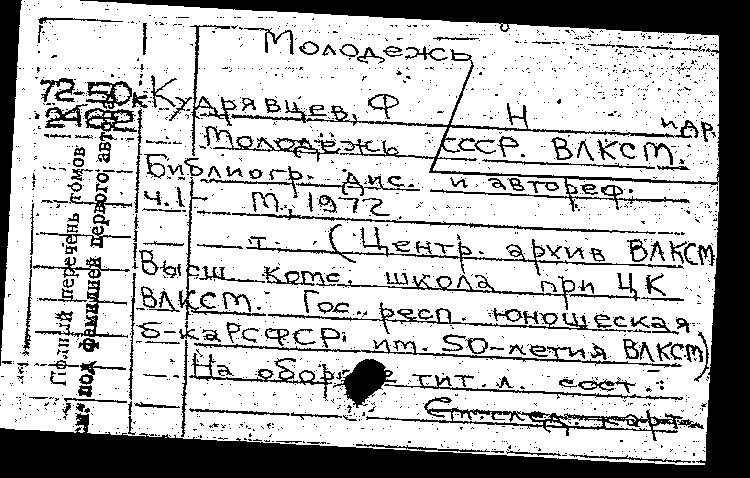 Молодежь
Кудрявцев, Ф Н и др
Молодежь СССР. ВЛКСМ.
Библиогр. дис. и автореф.
ч.1- М., 1972
т. (Центр. архив ВЛКСМ
Высш. комс. школа при ЦК
ВЛКСМ. Гос. респ. юношеская
б-ка РСФСР им. 50-летия ВЛКСМ)
На обороте тит. л. сост.:
См. след. карт
Полный перечень томов
см. под фамилией первого автора